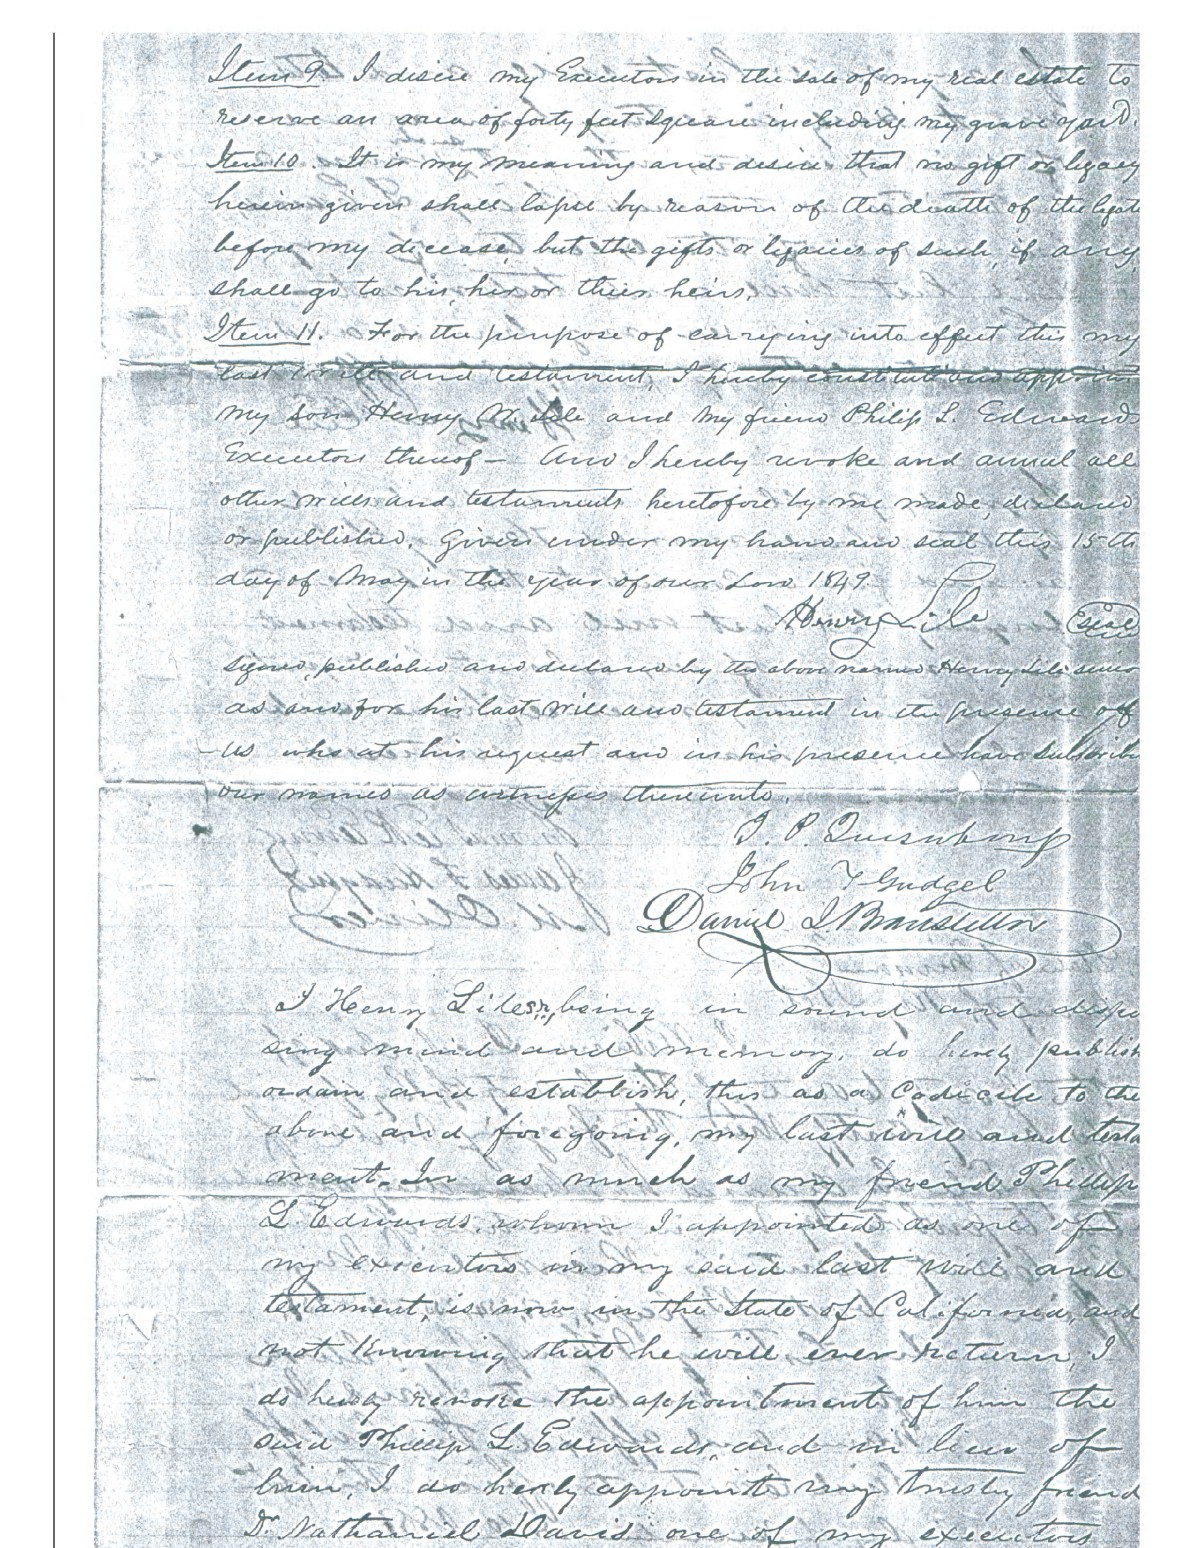 Item 9 I desire my Executors in the sale of my real estate to
reserve an area of forty feet square including my grave yard.
Item 10. It is my meaning and desire that no gift or legacy
herein given shall lapse by reason of the death of the legate
before my decease, but the gifts or legacies of such, if any,
shall go to his, her or their heirs.
Item 11. For the purpose of carrying into effect this my
last will and testament, I hereby constitute and appoint
my son Henry W. Lile and my friend Philip L. Edwards
Executors thereof— And I hereby revoke and annul all
other wills and testaments heretofore by me made, declared
or published. Given under my hand and seal this 15th
day of May in the year of our Lord 1849.
Henry Lile (seal)
Signed, published and declared by the above named Henry Lile senior
as and for his last will and testament in the presence of
us who at his request and in his presence have subscrib
our names as witnesses thereunto.
John T Gudgel
Daniel
I Henry Lile sr, being in sound and dispo
sing mind and memory, do herely publish
ordain and establish, this as a Codicile to the
above and foregoing, my last will and testa
ment. In as much as my friend Phillip
L Edwards, whom I appointed as one of
my executors in my said last will and
testament, is now, in the State of California, and
not knowing that he will ever return, I
do hereby revoke the appointment of him the
said Phillip L Edwards, and in lieu of
him, I do hereby appoint my trusty friend
Dr. Nathaniel Davis one of my executors